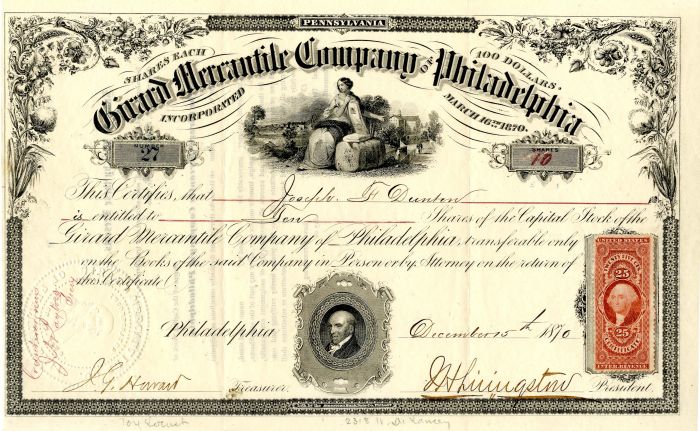 PENNSYLVANIA
SHARES EACH 100 DOLLARS.
Girard Mercantile Company OF Philadelphia
INCORPORATED MARCH 16TH 1870.
NUMBER
27
SHARES
10
This Certifies, that Joseph F Dunton
is entitled to Ten Shares of the Capital Stock of the
Girard Mercantile Company of Philadelphia, transferable only
on the Books of the said Company in Person or by Attorney on the return of
this Certificate
Philadelphia December 15th 1870
UNITED STATES
25
25
CERTIFICATE
INTER. REVENUE
Treasurer.
Livingston President.